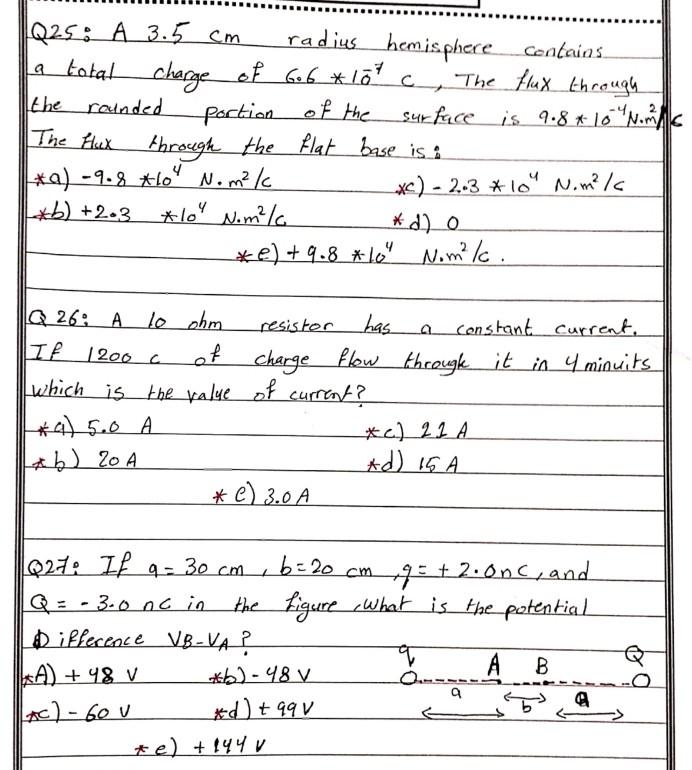 Q25: A 3.5 cm radius hemisphere contains
a total charge of 6.6 * 10⁻⁷ c, The flux through
the rounded portion of the surface is 9.8 * 10⁻⁴ N.m²/c
The flux through the flat base is:
*a) -9.8 *10⁴ N.m²/c *c) -2.3 *10⁴ N.m²/c
*b) +2.3 *10⁴ N.m²/c *d) 0
*e) +9.8 *10⁴ N.m²/c.
Q26: A 10 ohm resistor has a constant current.
If 1200 c of charge flow through it in 4 minuits
which is the value of current?
*a) 5.0 A *c) 21 A
*b) 20 A *d) 15 A
*e) 3.0 A
Q27: If a = 30 cm, b = 20 cm, q = + 2.0 nc, and
Q = -3.0 nc in the figure, what is the potential
Difference VB-VA?
q A B Q
*A) + 48 V *b) - 48 V
a b a
*c) - 60 V *d) + 99 V
*e) + 144 V